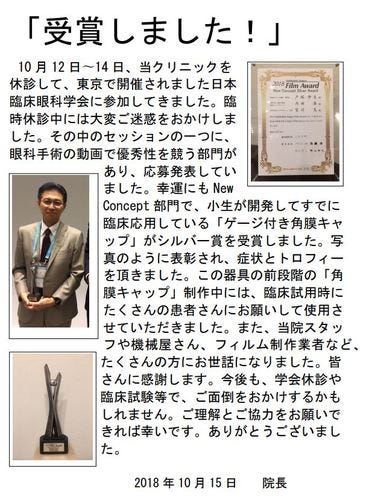 「受賞しました！」
10月12日～14日、当クリニックを
休診して、東京で開催されました日本
臨床眼科学会に参加してきました。臨
時休診中には大変ご迷惑をおかけしま
した。その中のセッションの一つに、
眼科手術の動画で優秀性を競う部門が
あり、応募発表してい
ました。幸運にも New
Concept 部門で、小生が開発してすでに
臨床応用している「ゲージ付き角膜キャ
ップ」がシルバー賞を受賞しました。写
真のように表彰され、症状とトロフィー
を頂きました。この器具の前段階の「角
膜キャップ」制作中には、臨床試用時に
たくさんの患者さんにお願いして使用さ
せていただきました。また、当院スタッ
フや機械屋さん、フィルム制作業者など、
たくさんの方にお世話になりました。皆
さんに感謝します。今後も、学会休診や
臨床試験等で、ご面倒をおかけするかも
しれません。ご理解とご協力をお願いで
きれば幸いです。ありがとうございまし
た。
2018年10月15日 院長
2018
Film Award
New Concept Silver Award